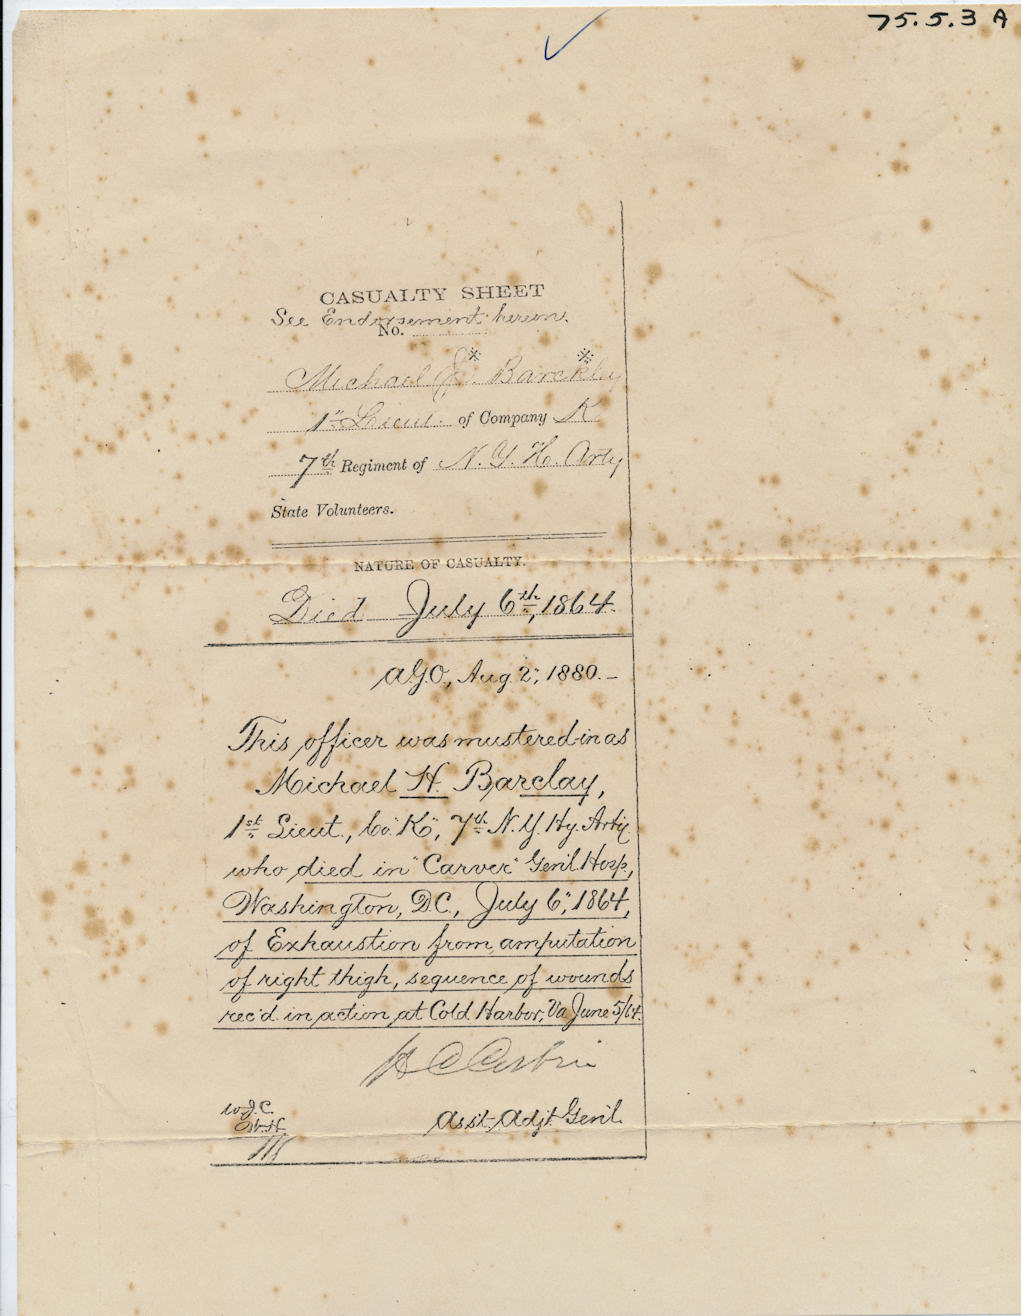 75.5.3 A
CASUALTY SHEET
See Endorsement herein.
No.
Michael J.* Barckley
1st Lieut. of Company K
7th Regiment of N.Y. H. Arty
State Volunteers.
NATURE OF CASUALTY.
Died July 6th, 1864.
A.G.O., Aug. 2", 1880.—
This officer was mustered-in as
Michael H. Barclay,
1st Lieut., Co. "K", 7th N.Y. Hy. Arty.
who died in "Carver" Genl. Hosp.,
Washington, D.C., July 6", 1864,
of Exhaustion from amputation
of right thigh, sequence of wounds
rec'd in action at Cold Harbor, Va. June 5/64.
H C Corbin
W.J.C.
Asst. Adjt. Genl.